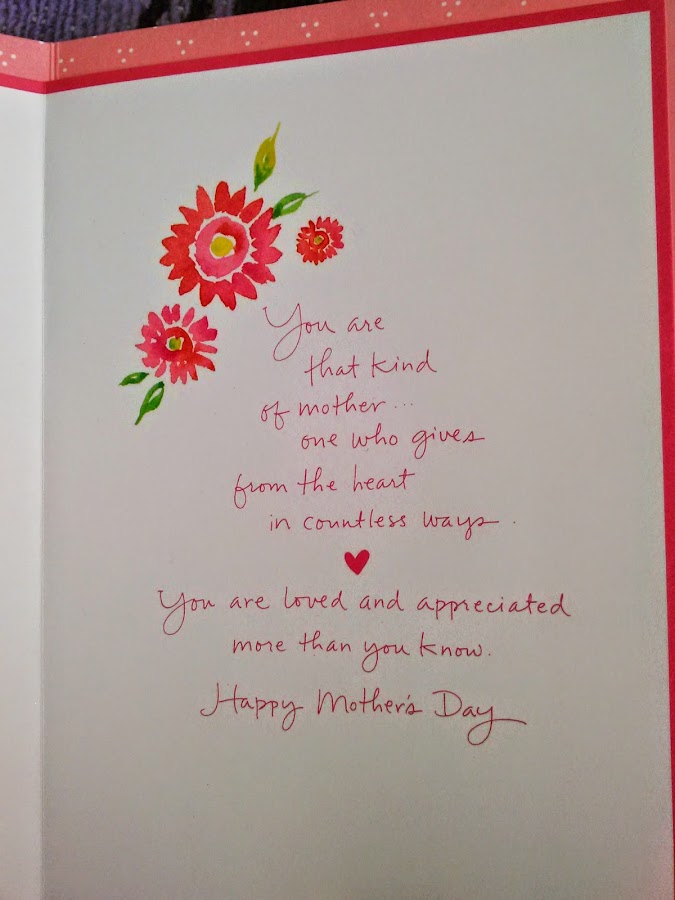 You are
that kind
of mother...
one who gives
from the heart
in countless ways.
You are loved and appreciated
more than you know.
Happy Mother's Day